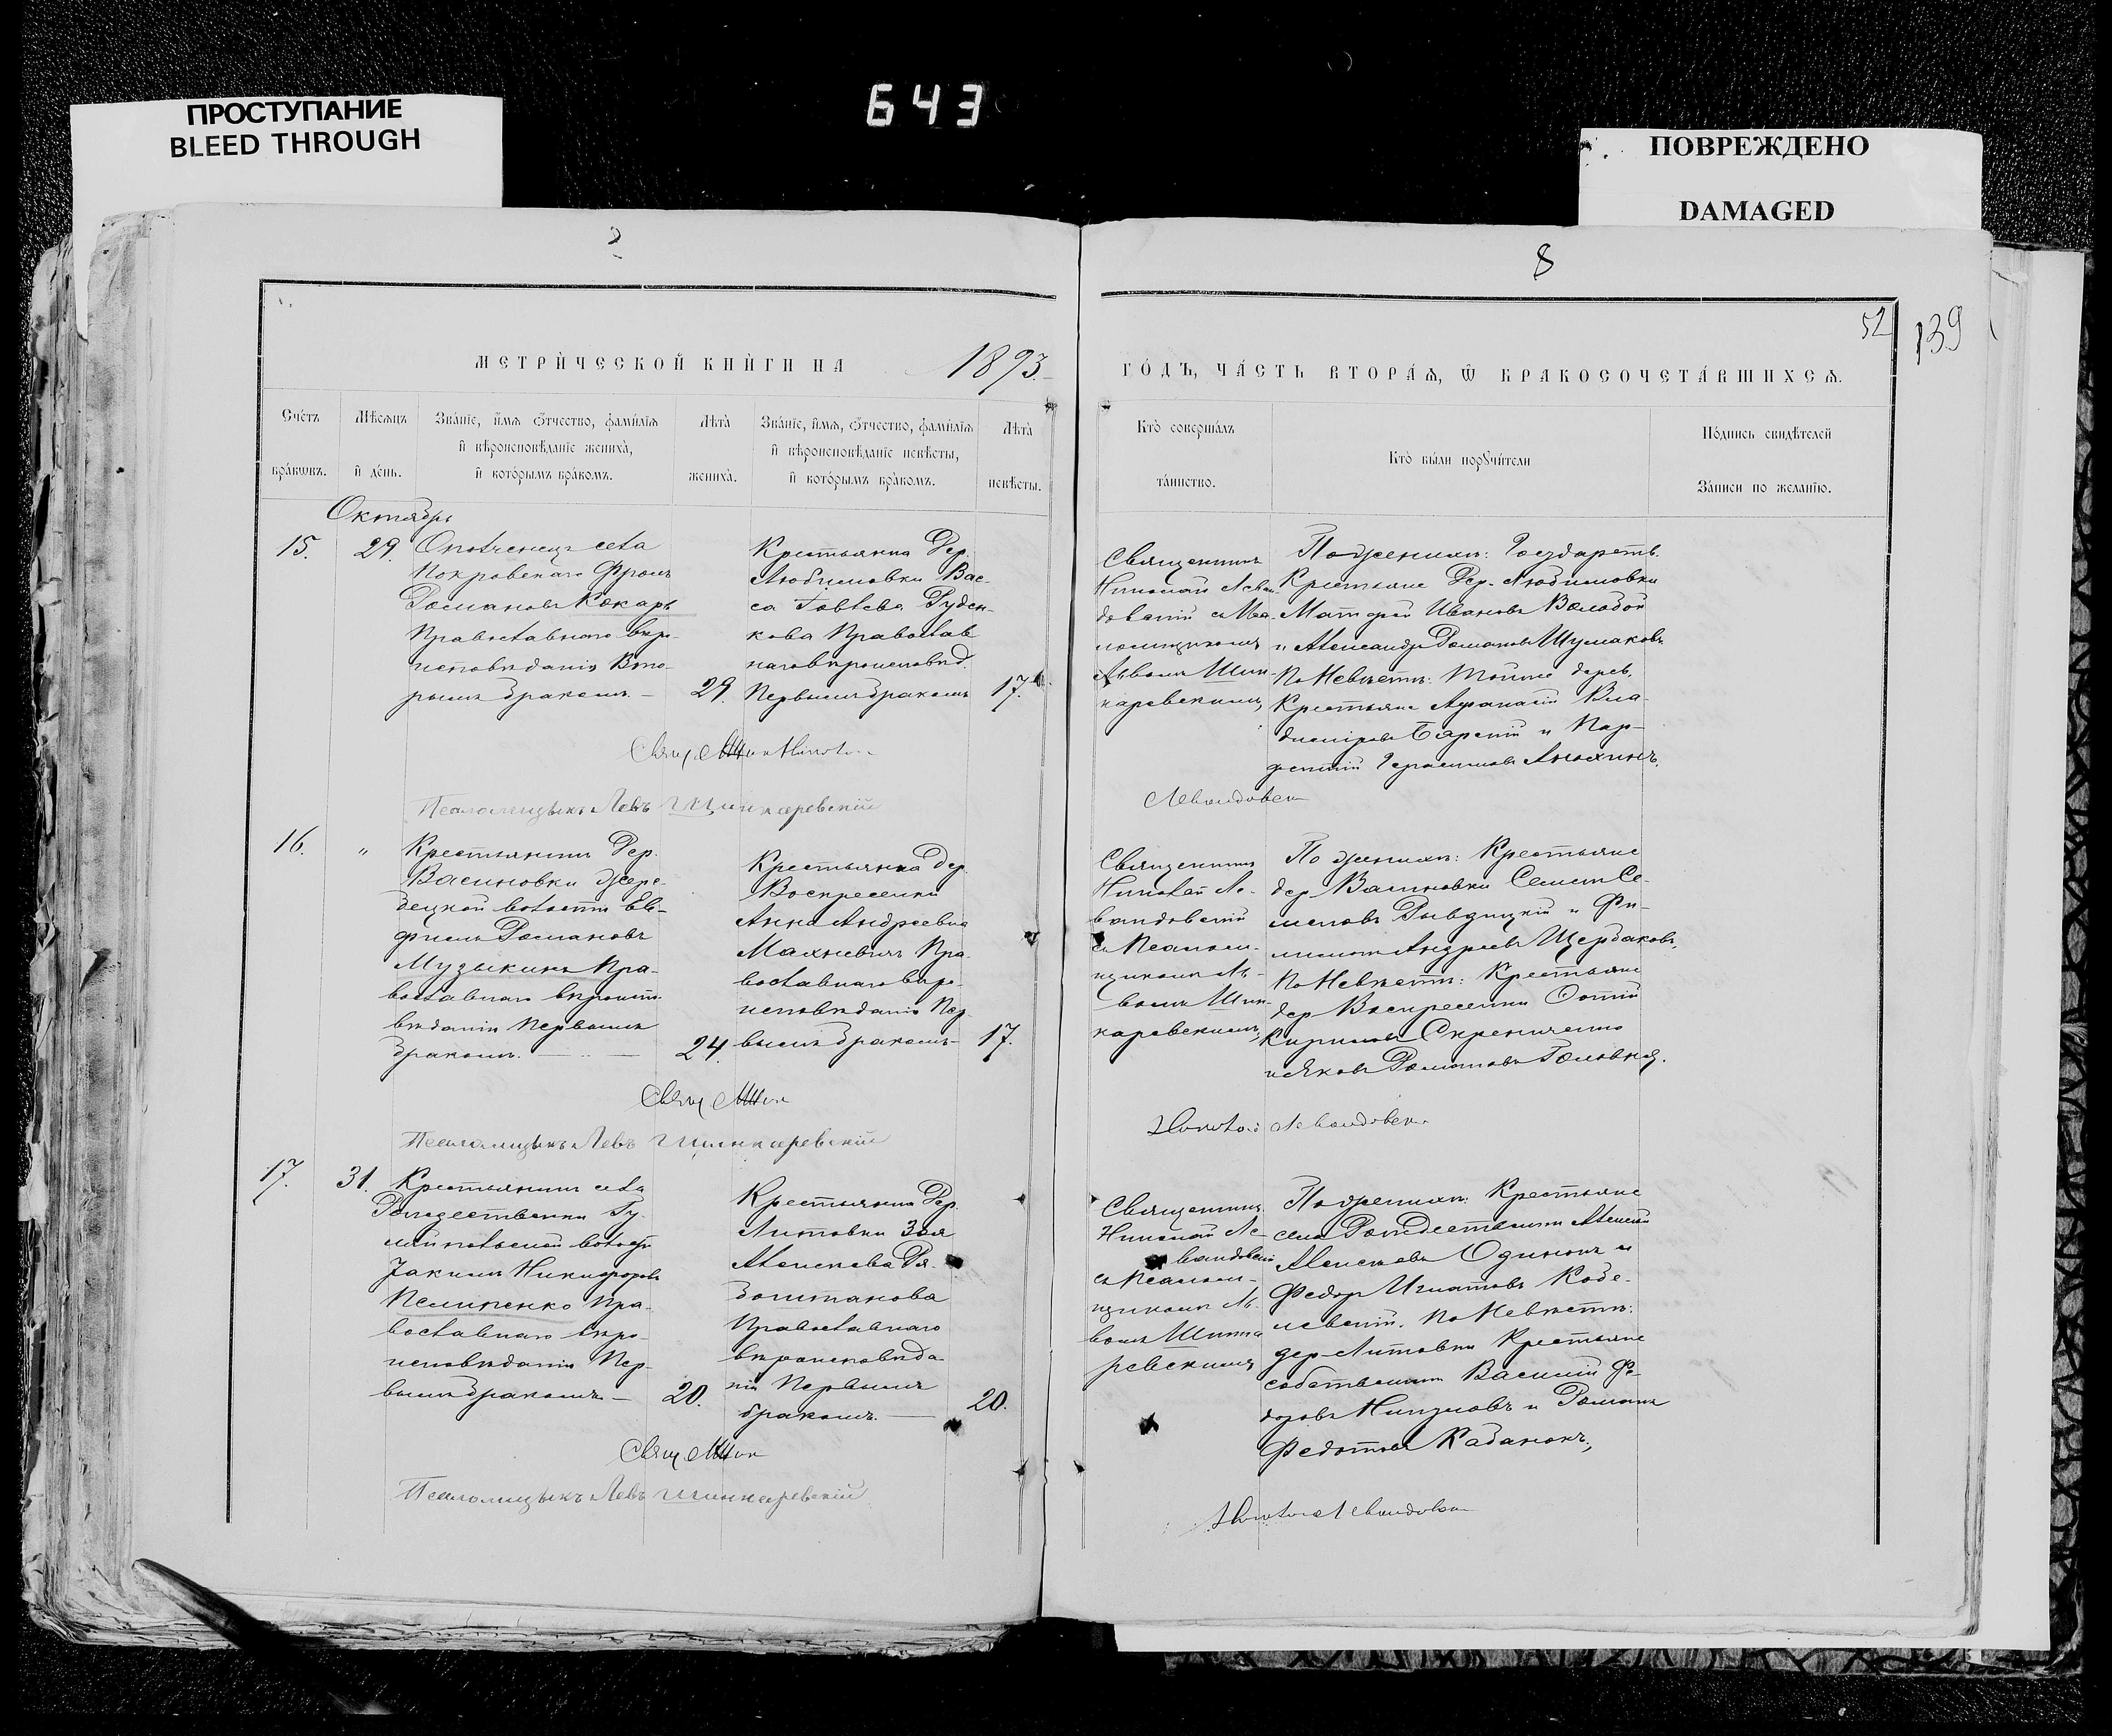 643
ПРОСТУПАНИЕ
BLEED THROUGH
ПОВРЕЖДЕНО
DAMAGED
8
52
139
МЕТРИЧЕСКОЙ КНИГИ НА 1893
ГОДЪ, ЧАСТЬ ВТОРАѦ, Ѿ БРАКОСОЧЕТАВШИХСѦ.
Счетъ
браковъ.
Мѣсяцъ
и день.
Званїе, имѧ, ѿчество, фамилїѧ
и вѣроисповѣданїе жениха,
и которымъ бракомъ.
Лѣта
жениха.
Званїе, имѧ, ѿчество, фамилїѧ
и вѣроисповѣданїе невѣсты,
и которымъ бракомъ.
Лѣта
невѣсты.
Кто совершалъ
таинство.
Кто были поручители
Подпись свидѣтелей
Записи по желанїю.
Октябрь
15.
29.
Ополченецъ села
Покровскаго Фролъ
Романовъ Кокарь
Православнаго вѣро-
исповѣданія Вто-
рымъ бракомъ.
29.
Крестьянка Дер.
Любимовки Вас-
са
кова Православ
наго вѣроисповѣд.
Первымъ бракомъ
17.
Священникъ
Николай Леван-
довскій
Львомъ Шин
каревскимъ,
По женихѣ: Государств.
Крестьяне Дер. Любимовки
Матфей Ивановъ
и Александръ Романовъ Шумаковъ
По Невѣстѣ: Тойже дерев.
Крестьяне Афанасій Вла-
диміровъ и Пар-
феній Герасимовъ Анохинъ.
Псаломщикъ Левъ Шинкаревскій
16.
"
Крестьянинъ Дер.
Васиновки Жере-
бецкой волости Ев-
фимъ Романовъ
Музыкинъ Пра-
вославнаго вѣроиспо-
вѣданія Первымъ
бракомъ.
24.
Крестьянка Дер.
Воскресенки
Анна Андреевна
Махневичъ Пра-
вославнаго вѣро-
исповѣданія Пер-
вымъ бракомъ
17.
Священникъ
Николай Ле-
вандовскій
съ Псалом-
щикомъ Ль-
вомъ Шин-
каревскимъ,
По женихѣ: Крестьяне
дер Васиновки Се-
меновъ и Фи-
Андреевъ Щербаковъ,
По Невѣстѣ: Крестьяне
дер Воскресенки
и Яковъ
Псаломщикъ Левъ Шинкаревскій
17.
31.
Крестьянинъ села
Рождественки Гу-
ляйпольской волости
Іакимъ Никифоровъ
Пелипенко Пра-
вославнаго вѣро-
исповѣданія Пер-
вымъ бракомъ
20.
Крестьянка Дер.
Литовки Зоя
Алексѣева
Православнаго
вѣроисповѣда-
нія Первымъ
бракомъ.
20.
Священникъ
Николай Ле-
вандовскій
съ Псалом-
щикомъ Ль-
вомъ Шинка
ревскимъ
По женихѣ: Крестьяне
села Рождественки Алексѣй
Алексѣевъ и
Федоръ Игнатовъ Кобе-
По Невѣстѣ:
дер Литовки Крестьяне
собственники Василій Фе-
доровъ и Романъ
Федотовъ Кабанокъ,
Псаломщикъ Левъ Шинкаревскій